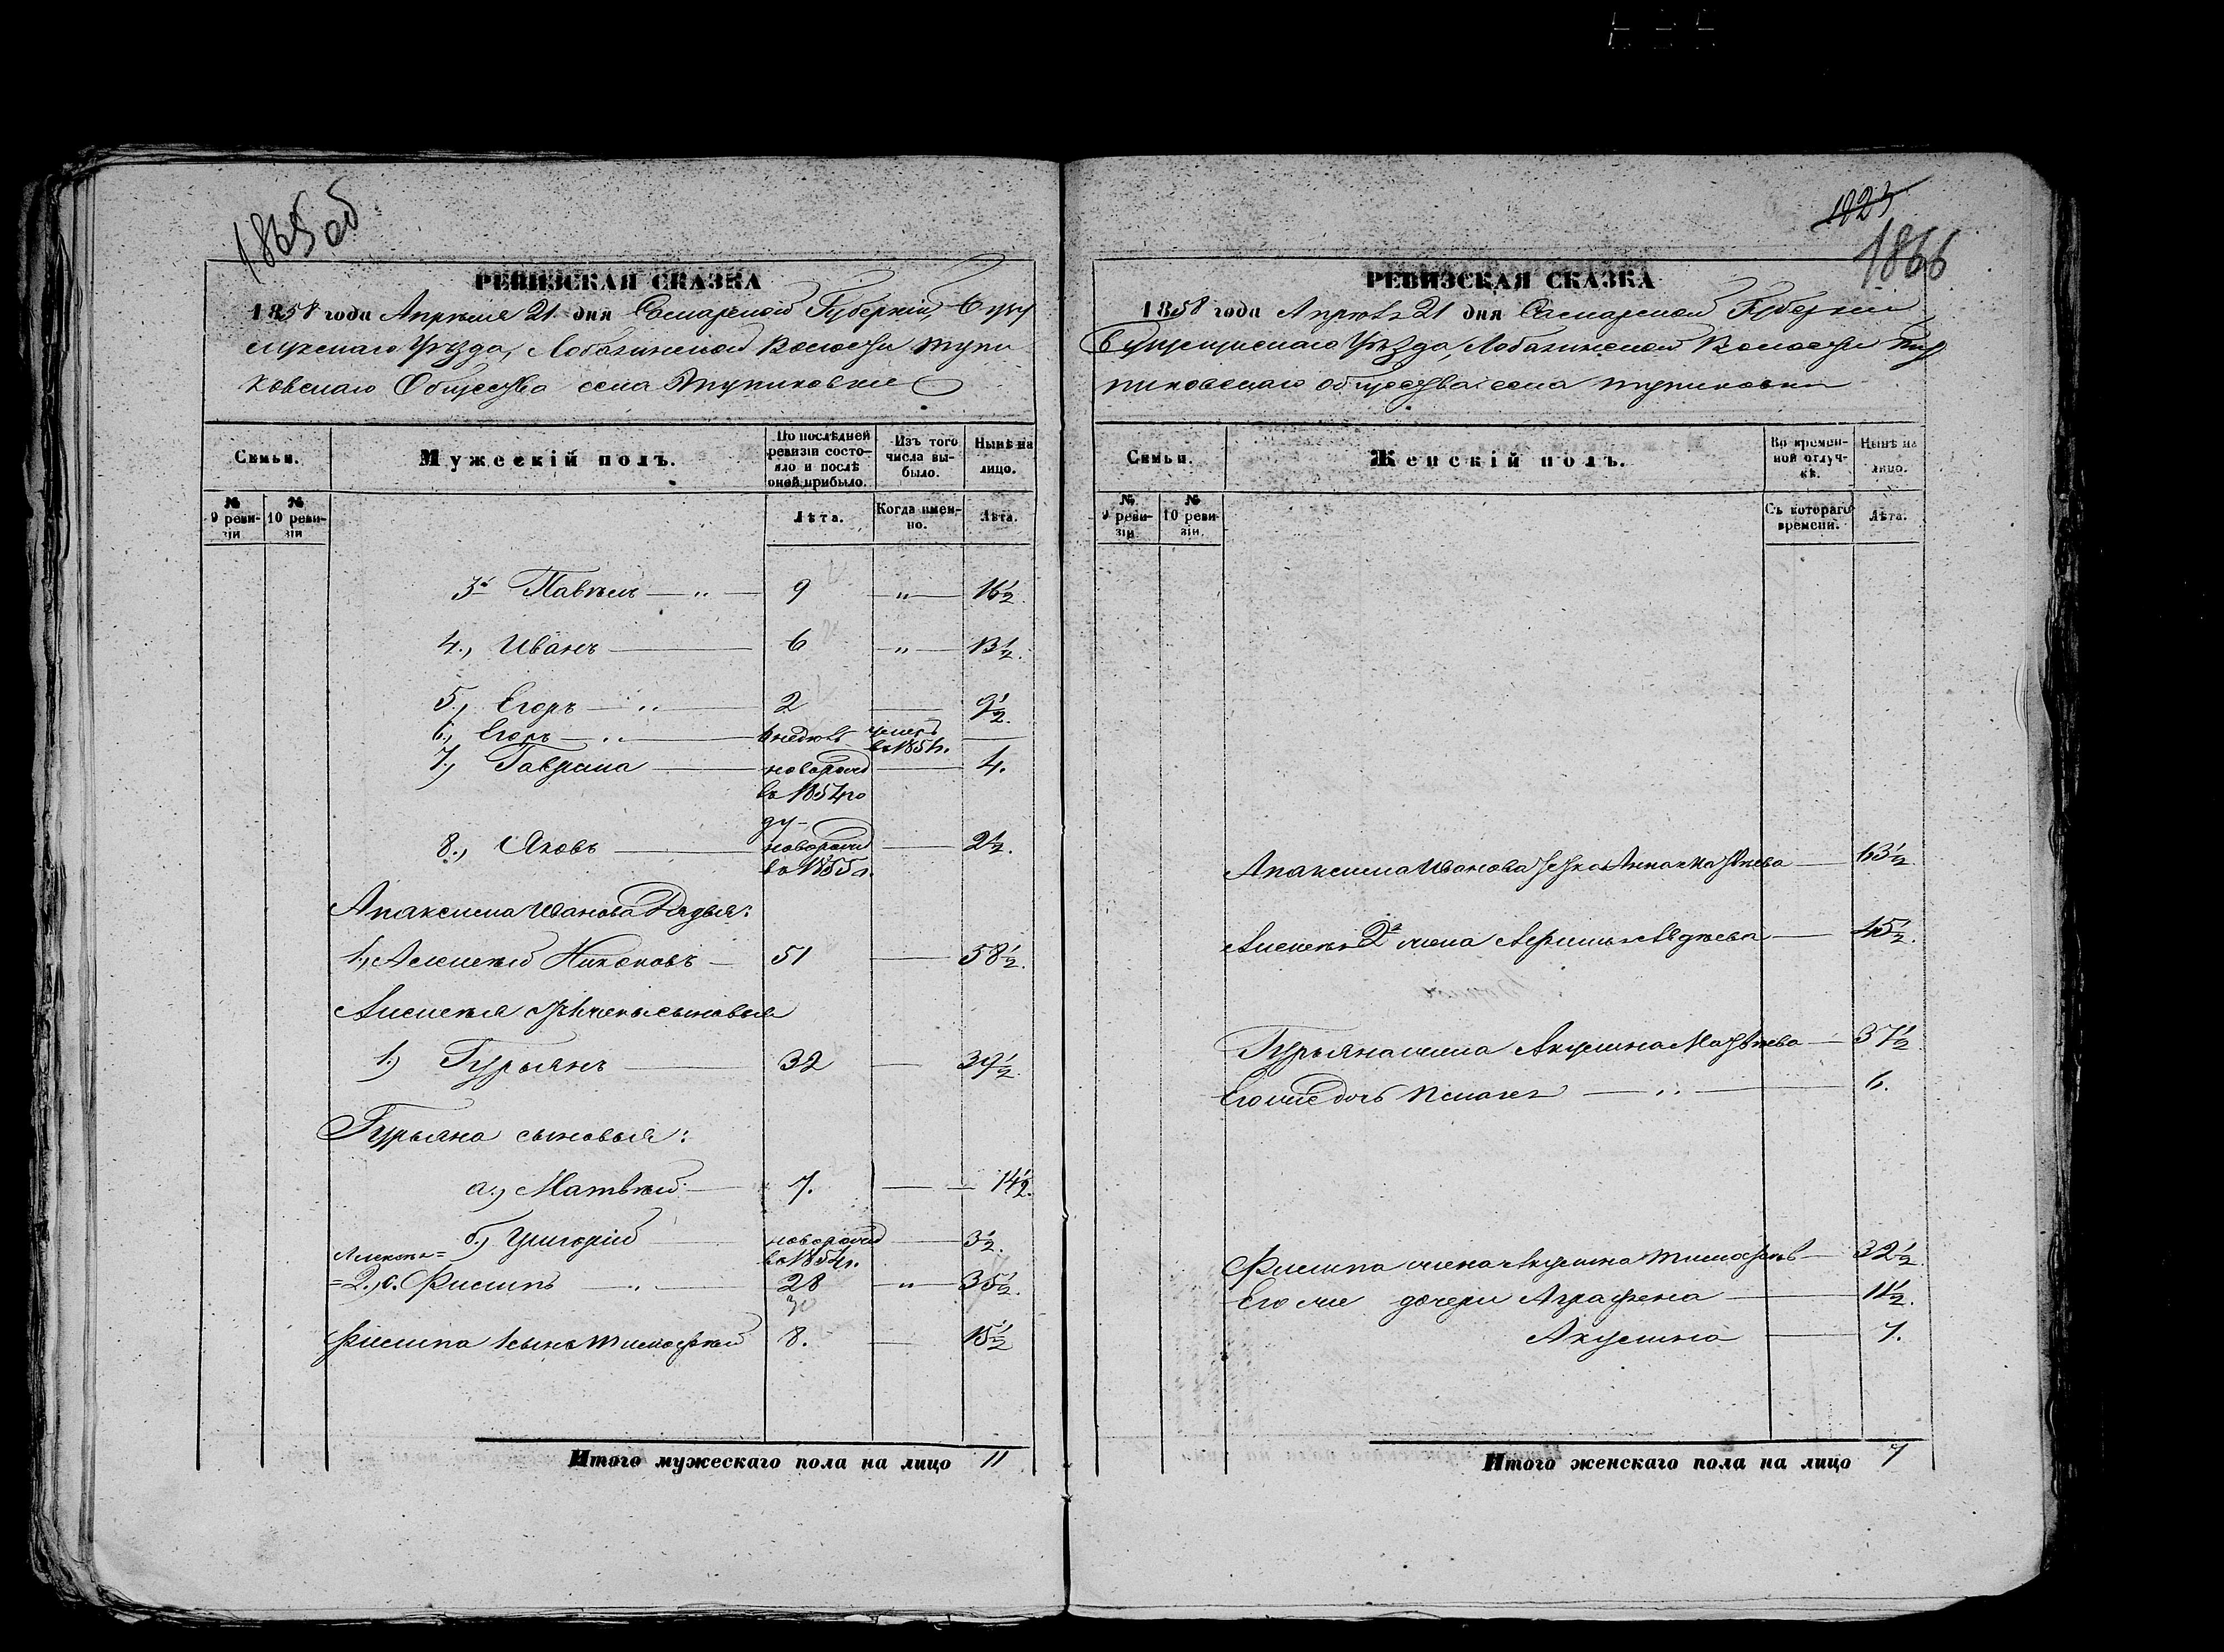 1865 об
РЕВИЗСКАЯ СКАЗКА
1858 года Апреля 21 дня Самарской Губерніи, Бугу
Уѣзда, Лобазинской Волости Тупи
ковскаго Общества села Тупиковки
Семьи.
Мужескій полъ.
По послѣдней ревизіи состояло и послѣ оной прибыло.
Изъ того числа выбыло.
Нынѣ на лицо.
№ 9 ревизіи
№ 10 ревизіи
Лѣта.
Когда именно.
Лѣта.
3й Павелъ — „ — 9 — „ — 16½
4., Иванъ — 6 — „ — 13½.
5., Егоръ — „ — 2 — 9½.
6., Егоръ — „ — умеръ въ 185 г.
7., Гаврила — новорожд — 4.
въ 1854 го
ду
8., Яковъ — новорожд — 2½.
въ 1855 г.
Иванова Дядья:
1., Алексѣй Никоновъ — 51 — 58½.
Алексѣя сыновья
1.) Гурьянъ — 32 — 39½.
Гурьяна сыновья:
а., Матвѣй — 7. — 14½.
б., Григорій — новорожд — 3½.
въ 1854 г.
=2., Филипъ — „ — 28 — „ — 35½.
30
Филипа 1 сынъ Тимофѣй 8. — 15½
Итого мужескаго пола на лицо 11
1923
1866
РЕВИЗСКАЯ СКАЗКА
1858 года Апрѣля 21 дня Самарской Губерніи
Уѣзда, Лобазинской Волости Ту
пиковскаго общества села Тупиковки
Семьи.
Женскій полъ.
Во временной отлучкѣ.
Нынѣ на лицо.
№ 9 ревизіи
№ 10 ревизіи.
Съ котораго времени.
Лѣта.
Иванова Анна Матвѣева — 63½
Алексѣя 2я жена Авдѣева — 45½.
Гурьяна жена Акулина Матвѣева — 37½
Его же дочь — „ — 6.
Филипа жена Акулина Тимофѣев — 32½.
Его же дочери Аграфена — 11½.
Акулина — 7.
Итого женскаго пола на лицо 7